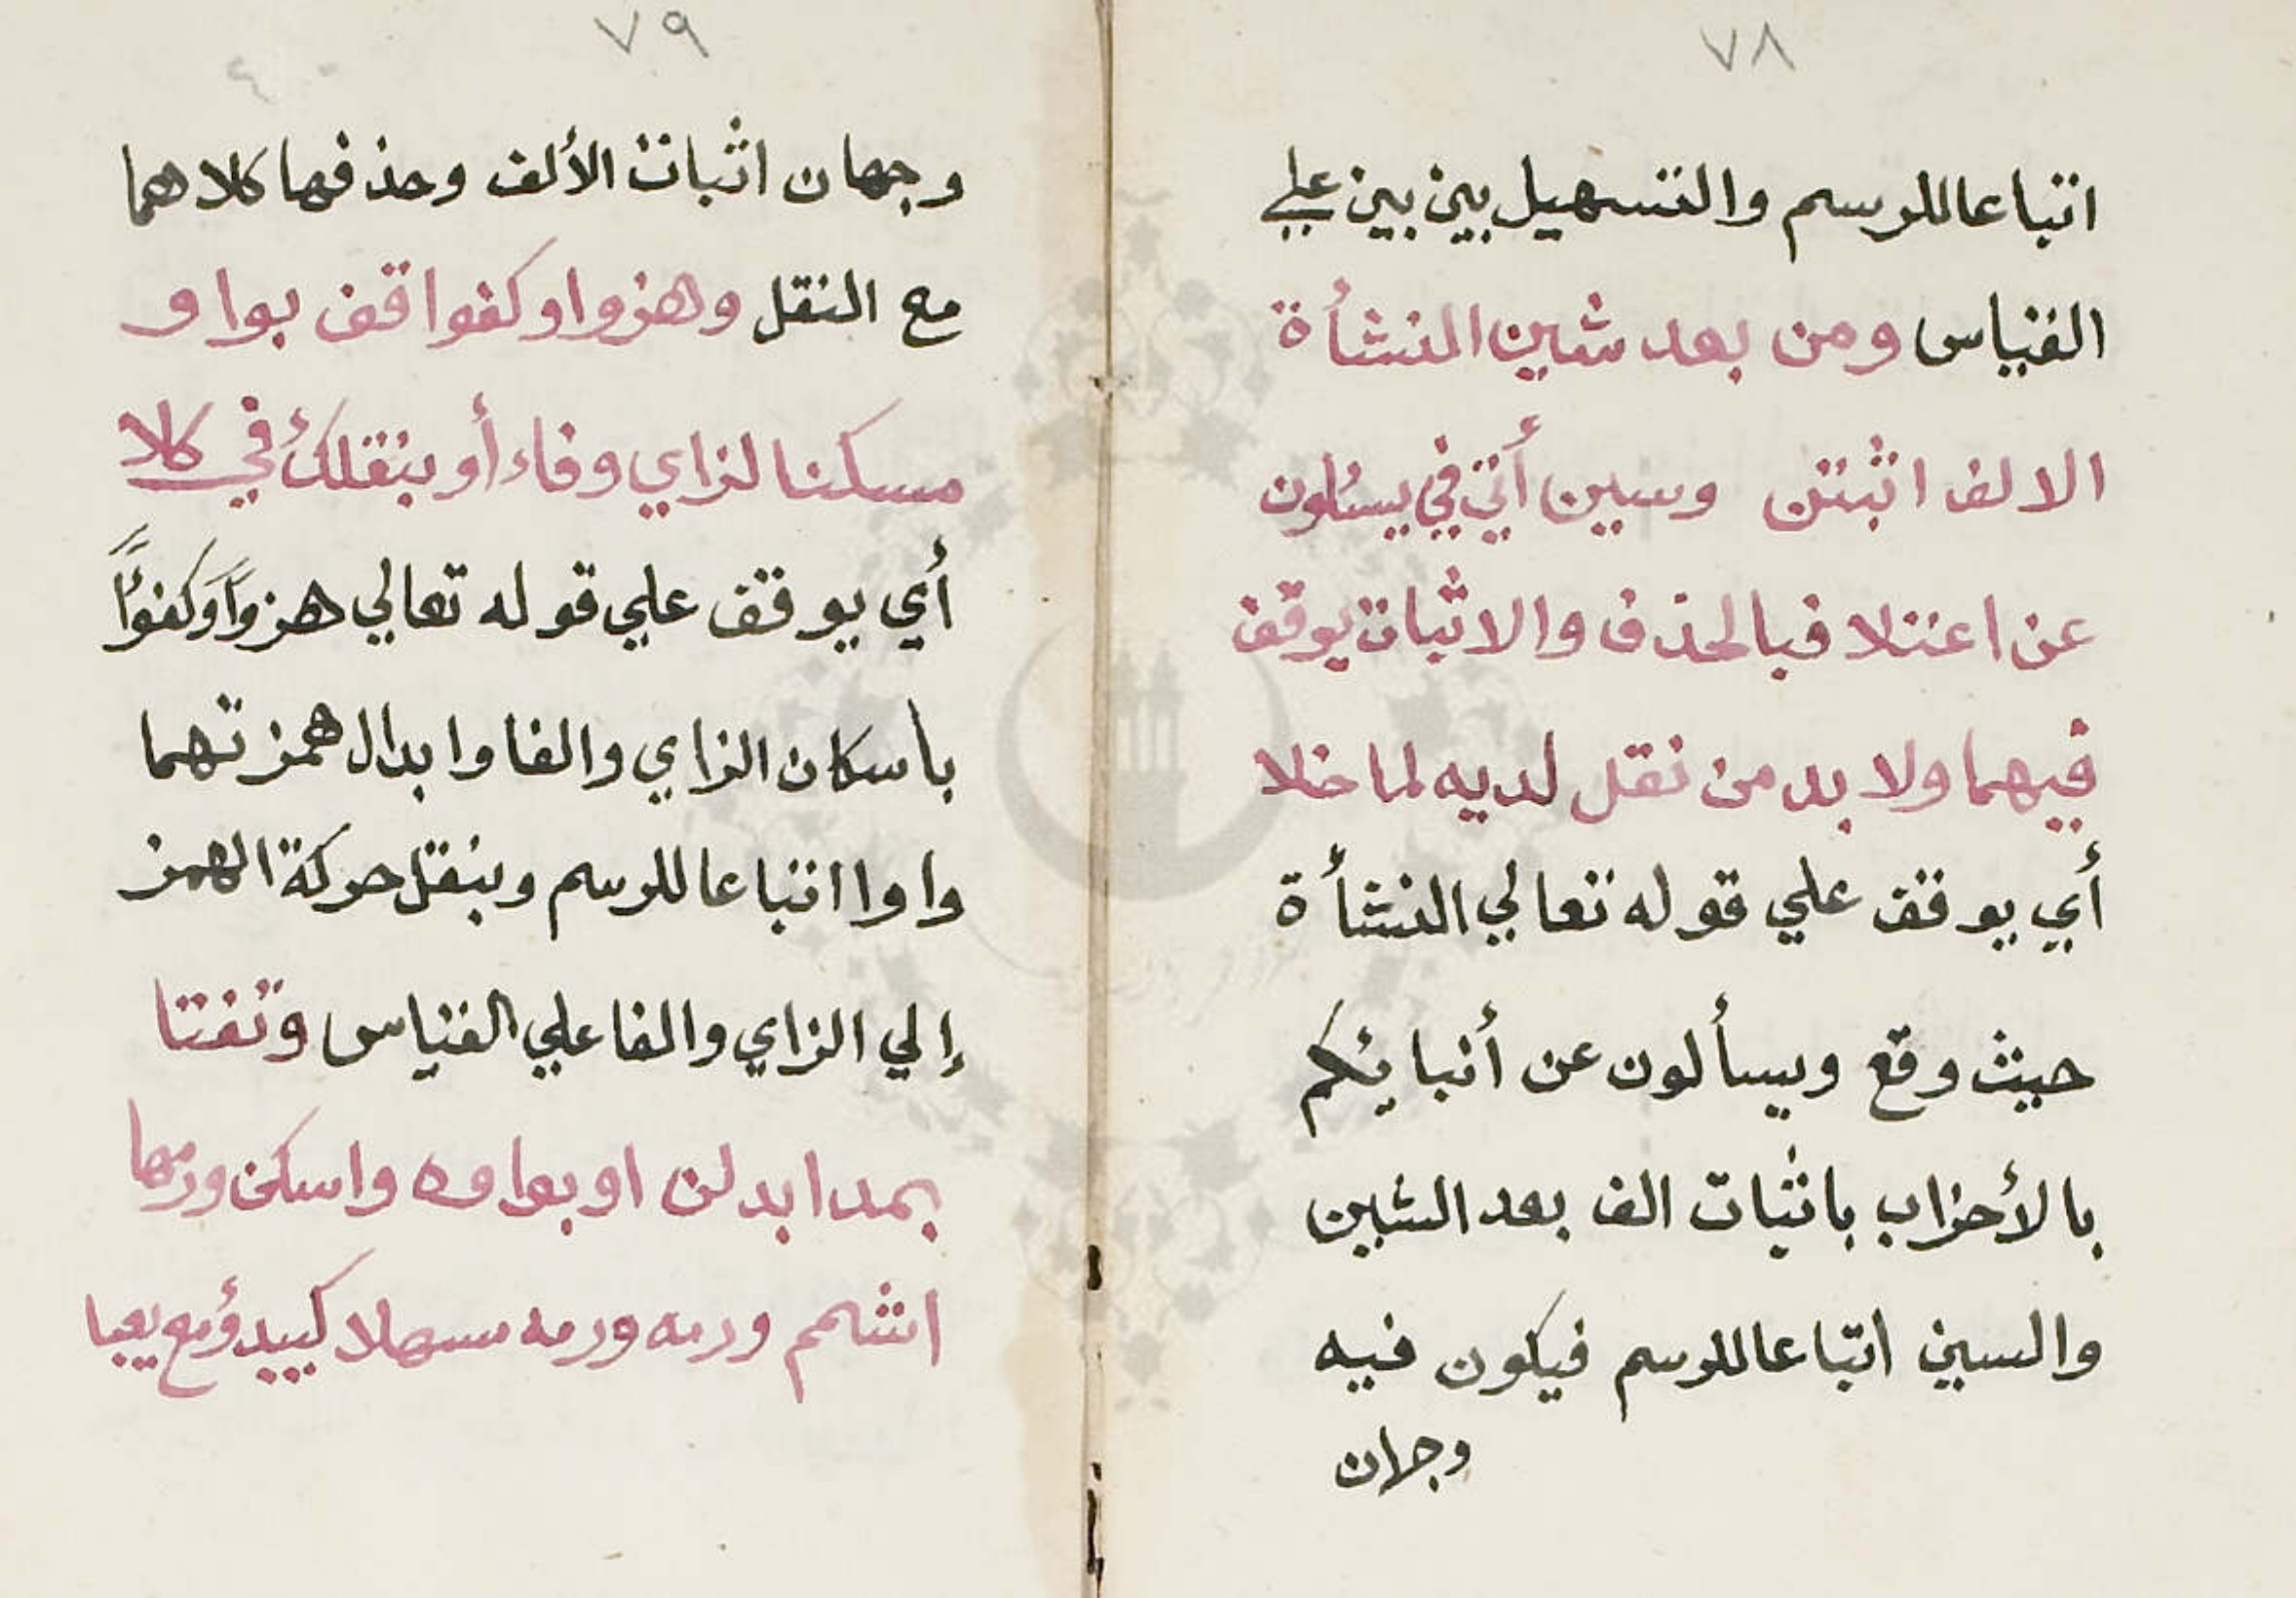 ٧٨
اتباعا للرسم والتسهيل بين بين علي
القياس ومن بعد شين النشأة
الالف اثبتن وسين أتي في يسئلون
عن اعتلا فبالحذف والاثبات يوقف
فيهما ولا بد من نقل لديه لما خلا
أي يوقف علي قوله تعالي النشأة
حيث وقع ويسألون عن أنبائكم
بالأحزاب باثبات الف بعد الشين
والسين اتباعا للرسم فيكون فيه
وجهان
٧٩
وجهان اثبات الألف وحذفها كلاهما
مع النقل وهزوا وكفوا قف بواو
مسكنا لزاي وفاء أو بنقلك في كلا
أي يوقف علي قوله تعالي هزوًا وكفوًا
باسكان الزاي والفا وابدال همزتهما
واوا اتباعا للرسم وبنقل حركة الهمز
إلي الزاي والفا علي القياس وتفتا
بمد ابدلن او بواوه واسكن ورمها
اشمم ورمه ورمه مسهلا كيبدؤ مع يعبا